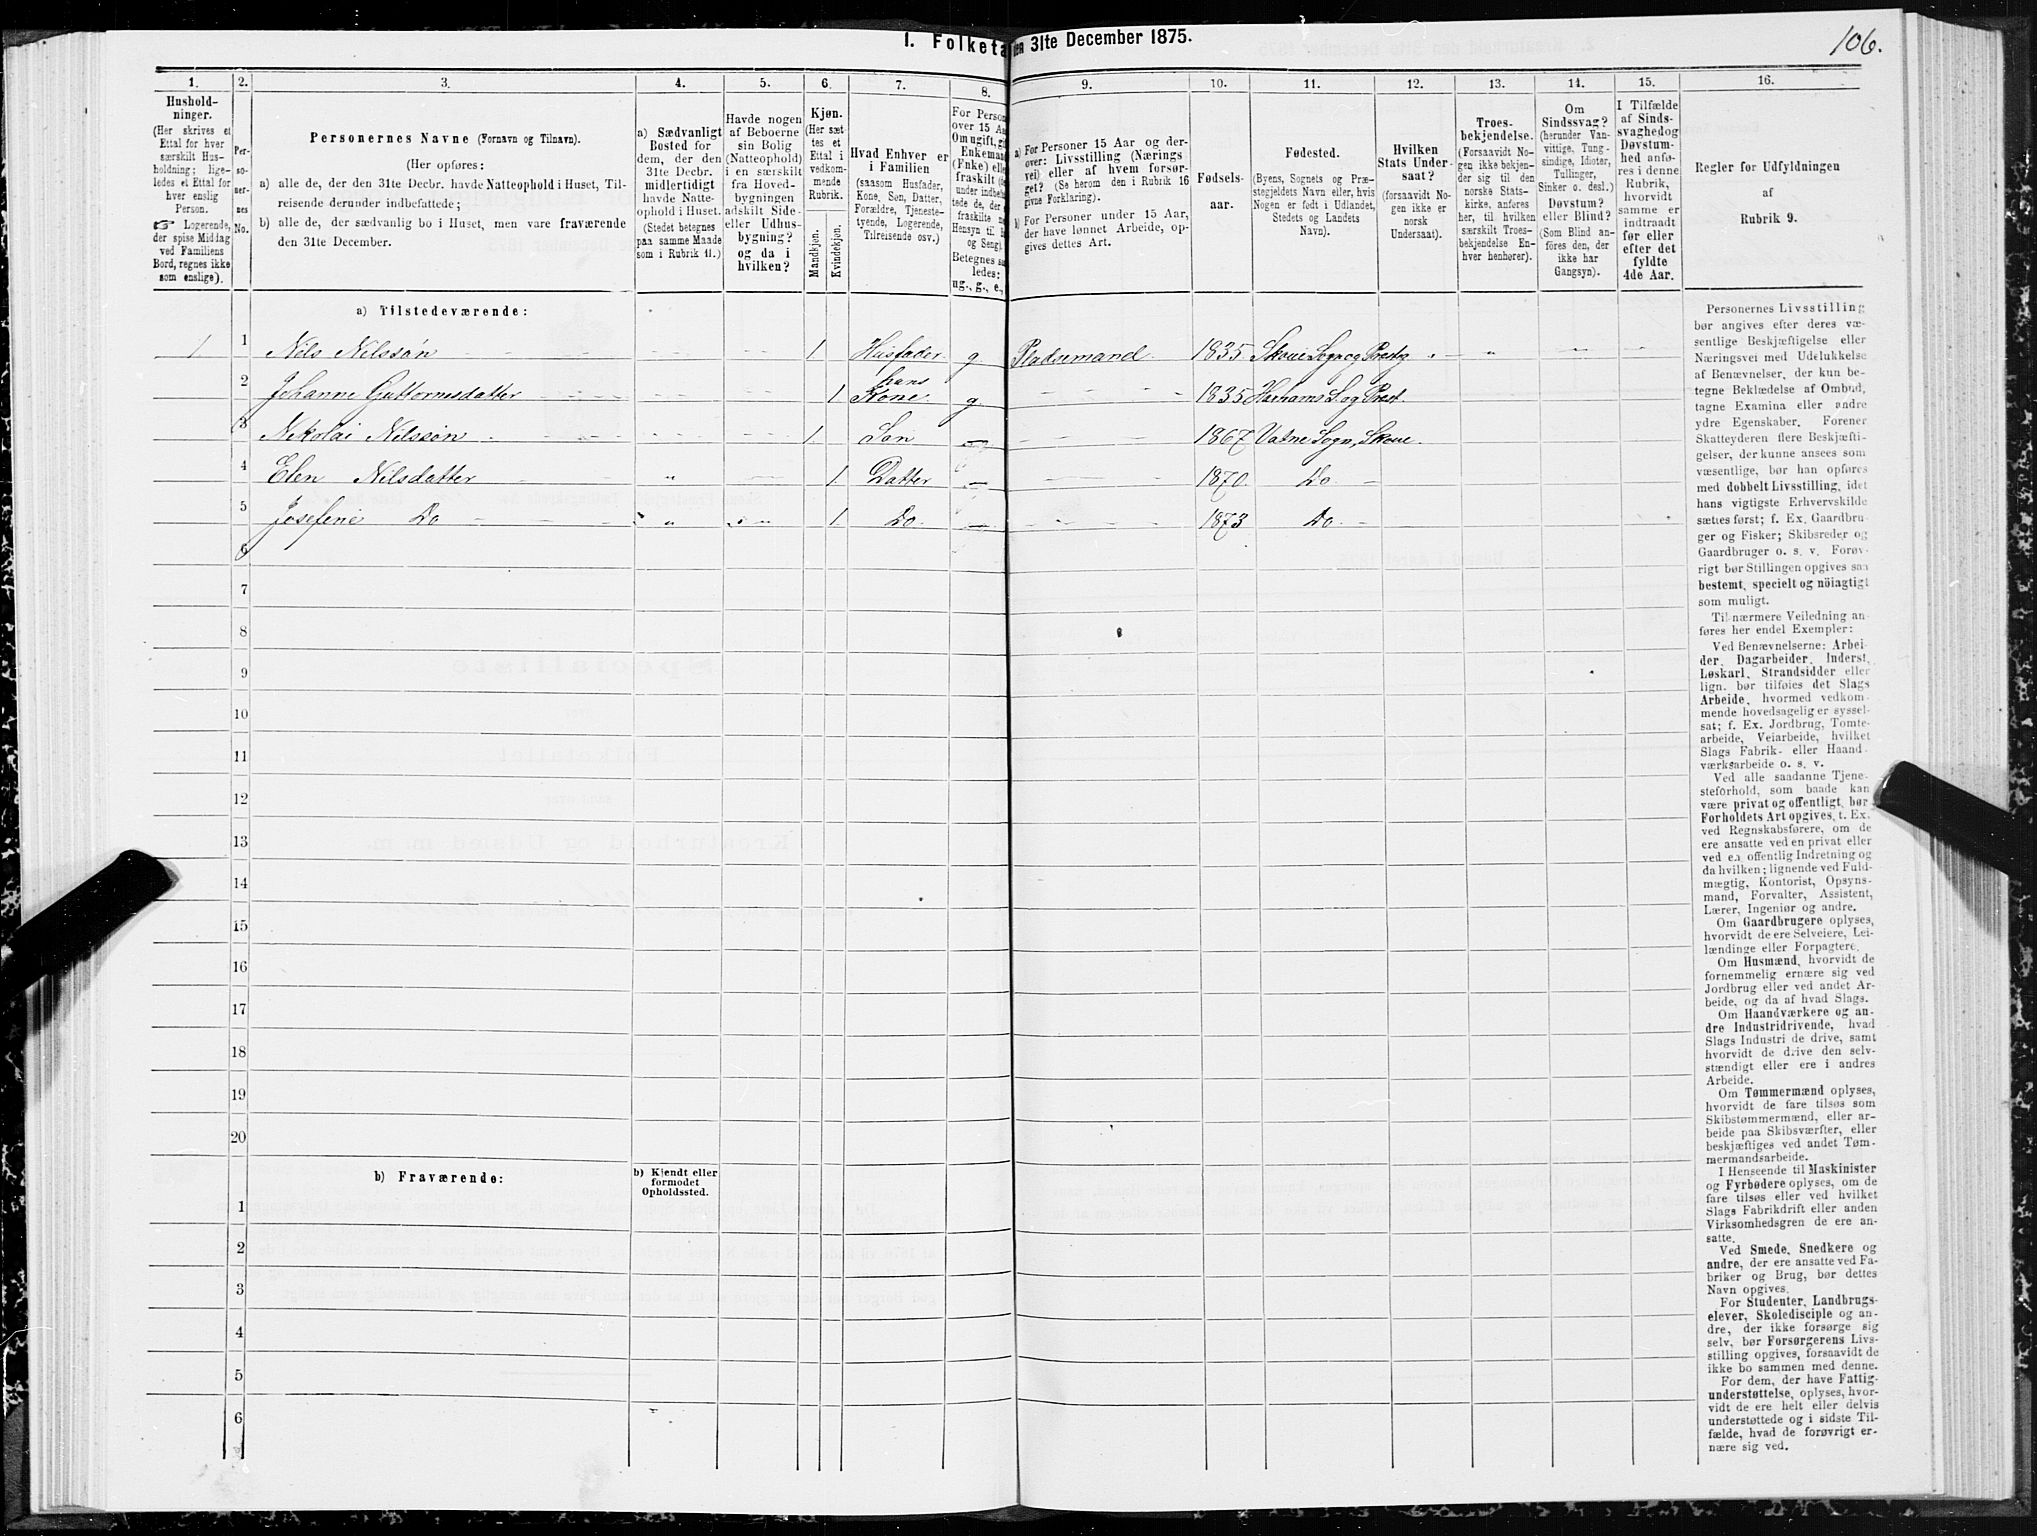 106.
1. Folketa
den 31te December 1875.
1.
Hushold-
ninger.
(Her skrives et
Ettal for hver
særskilt Hus-
holdning; lige-
ledes et Ettal for
hver enslig
Person.
☞ Logerende,
der spise Middag
ved Familiens
Bord, regnes ikke
som enslige).
2.
Per-
so-
ner-
nes
No.
3.
Personernes Navne (Fornavn og Tilnavn).
(Her opføres:
a) alle de, der den 31te Decbr. havde Natteophold i Huset, Til-
reisende derunder indbefattede;
b) alle de, der sædvanlig bo i Huset, men vare fraværende
den 31te December.
4.
a) Sædvanligt
Bosted for
dem, der den
31te Decbr.
midlertidigt
havde Natte-
ophold i Huset.
(Stedet betegnes
paa samme Maade
som i Rubrik 11.)
5.
Havde nogen
af Beboerne
sin Bolig
(Natteophold)
i en særskilt
fra Hoved-
bygningen
adskilt Side-
eller Udhus-
bygning?
og da i
hvilken?
6.
Kjøn.
(Her sæt-
tes et
Ettal i
vedkom-
mende
Rubrik.
Mandkjøn.
Kvindekjøn.
7.
Hvad Enhver er
i Familien
(saasom Husfader,
Kone, Søn, Datter,
Forældre, Tjeneste-
tyende, Logerende,
Tilreisende osv.)
8.
For Person
over 15 Aa
Om ugift, gi
Enkemand
(Enke) elle
fraskilt (se
under indbe
tede de, der
fraskilte me
Hensyn til B
og Seng).
Betegnes saa
ledes:
ug., g., e.,
9.
a) For Personer 15 Aar og der-
over: Livsstilling (Nærings
vei) eller af hvem forsør-
get? (Se herom den i Rubrik 16
givne Forklaring).
b) For Personer under 15 Aar,
der have lønnet Arbeide, op-
gives dettes Art.
10.
Fødsels-
aar.
11.
Fødested.
(Byens, Sognets og Præ-
stegjeldets Navn eller, hvis
Nogen er født i Udlandet,
Stedets og Landets
Navn).
12.
Hvilken
Stats Under-
saat?
(forsaavidt No-
gen ikke er
norsk
Undersaat).
13.
Troes-
bekjendelse.
(Forsaavidt No-
gen ikke bekjen-
der sig til den
norske Stats-
kirke, anføres
her, til hvilken
særskilt Troes-
bekjendelse En-
hver henhører).
14.
Om
Sindssvag?
(herunder Van-
vittige, Tung-
sindige, Idioter,
Tullinger,
Sinker o. desl.)
Døvstum?
eller Blind?
(Som Blind an-
føres den, der
ikke har
Gangsyn).
15.
I Tilfælde
af Sinds-
svaghed og
Døvstum-
hed anfø-
res i denne
Rubrik,
hvorvidt
samme er
indtraadt
før eller
efter det
fyldte
4de Aar.
16.
Regler for Udfyldningen
af
Rubrik 9.
a) Tilstedeværende:
1 1 Nils Nilssøn 1 Husfader g Pladsemand 1835 Skoue Sogn og Prestg
2 Johanne Guttormsdatter 1 hans Kone g 1835 Harhams S. og Prest.
3 Nikolai Nilssøn 1 Søn 1867 Vatne Sogn, Skoue
4 Elen Nilsdatter " 1 Datter 1870 Do
5 Josefine Do " " 1 Do 1873 Do
6
7
8
9
10
11
12
13
14
15
16
17
18
19
20
b) Fraværende:
b) Kjendt eller
formodet
Opholdssted.
1
2
3
4
5
6
Personernes Livsstilling
bør angives efter deres væ-
sentlige Beskjæftigelse eller
Næringsvei med Udelukkelse
af Benævnelser, der kun be-
tegne Beklædelse af Ombud,
tagne Examina eller andre
ydre Egenskaber. Forener
Skatteyderen flere Beskjæfti-
gelser, der kunne ansees som
væsentlige, bør han opføres
med dobbelt Livsstilling, idet
hans vigtigste Erhvervskilde
sættes først; f. Ex. Gaardbru-
ger og Fisker; Skibsreder og
Gaardbruger o. s. v. Forøv-
rigt bør Stillingen opgives saa
bestemt, specielt og nöiagtigt
som muligt.
Til nærmere Veiledning an-
føres her endel Exempler:
Ved Benævnelserne: Arbei-
der, Dagarbeider, Inderst,
Løskarl, Strandsidder eller
lign. bør tilføies det Slags
Arbeide, hvormed vedkom-
mende hovedsagelig er syssel-
sat; f. Ex. Jordbrug, Tomte-
arbeide, Veiarbeide, hvilket
Slags Fabrik- eller Haand
værksarbeide o. s. v.
Ved alle saadanne Tjene-
steforhold, som baade kan
være privat og offentligt, bør
Forholdets Art opgives, t. Ex.
ved Regnskabsførere, om de
ere ansatte ved en privat eller
ved en offentlig Indretning og
da hvilken; lignende ved Fuld-
mægtig, Kontorist, Opsyns-
mand, Forvalter, Assistent,
Lærer, Ingeniør og andre.
Om Gaardbrugere oplyses,
hvorvidt de ere Selveiere, Lei-
lændinge eller Forpagtere.
Om Husmænd, hvorvidt de
fornemmelig ernære sig ved
Jordbrug eller ved andet Ar-
beide, og da af hvad Slags.
Om Haandværkere og an-
dre Industridrivende, hvad
Slags Industri de drive, samt
hvorvidt de drive den selv-
stændigt eller ere i andres
Arbeide.
Om Tømmermænd oplyses,
hvorvidt de fare tilsøs som
Skibstømmermænd, eller ar-
beide paa Skibsværfter, eller
beskjæftiges ved andet Tøm-
mermandsarbeide.
I Henseende til Maskinister
og Fyrbødere oplyses, om de
fare tilsøs eller ved hvilket
Slags Fabrikdrift eller anden
Virksomhedsgren de ere an-
satte.
Ved Smede, Snedkere og
andre, der ere ansatte ved Fa-
briker og Brug, bør dettes
Navn opgives.
For Studenter, Landbrugs-
elever, Skoledisciple og an-
dre, der ikke forsørge sig
selv, bør Forsørgerens Livs-
stilling opgives, forsaavidt de
ikke bo sammen med denne.
For dem, der have Fattig-
understøttelse, oplyses, hvor-
vidt de ere helt eller delvis
understøttede og i sidste Til-
fælde, hvad de forøvrigt er-
nære sig ved.